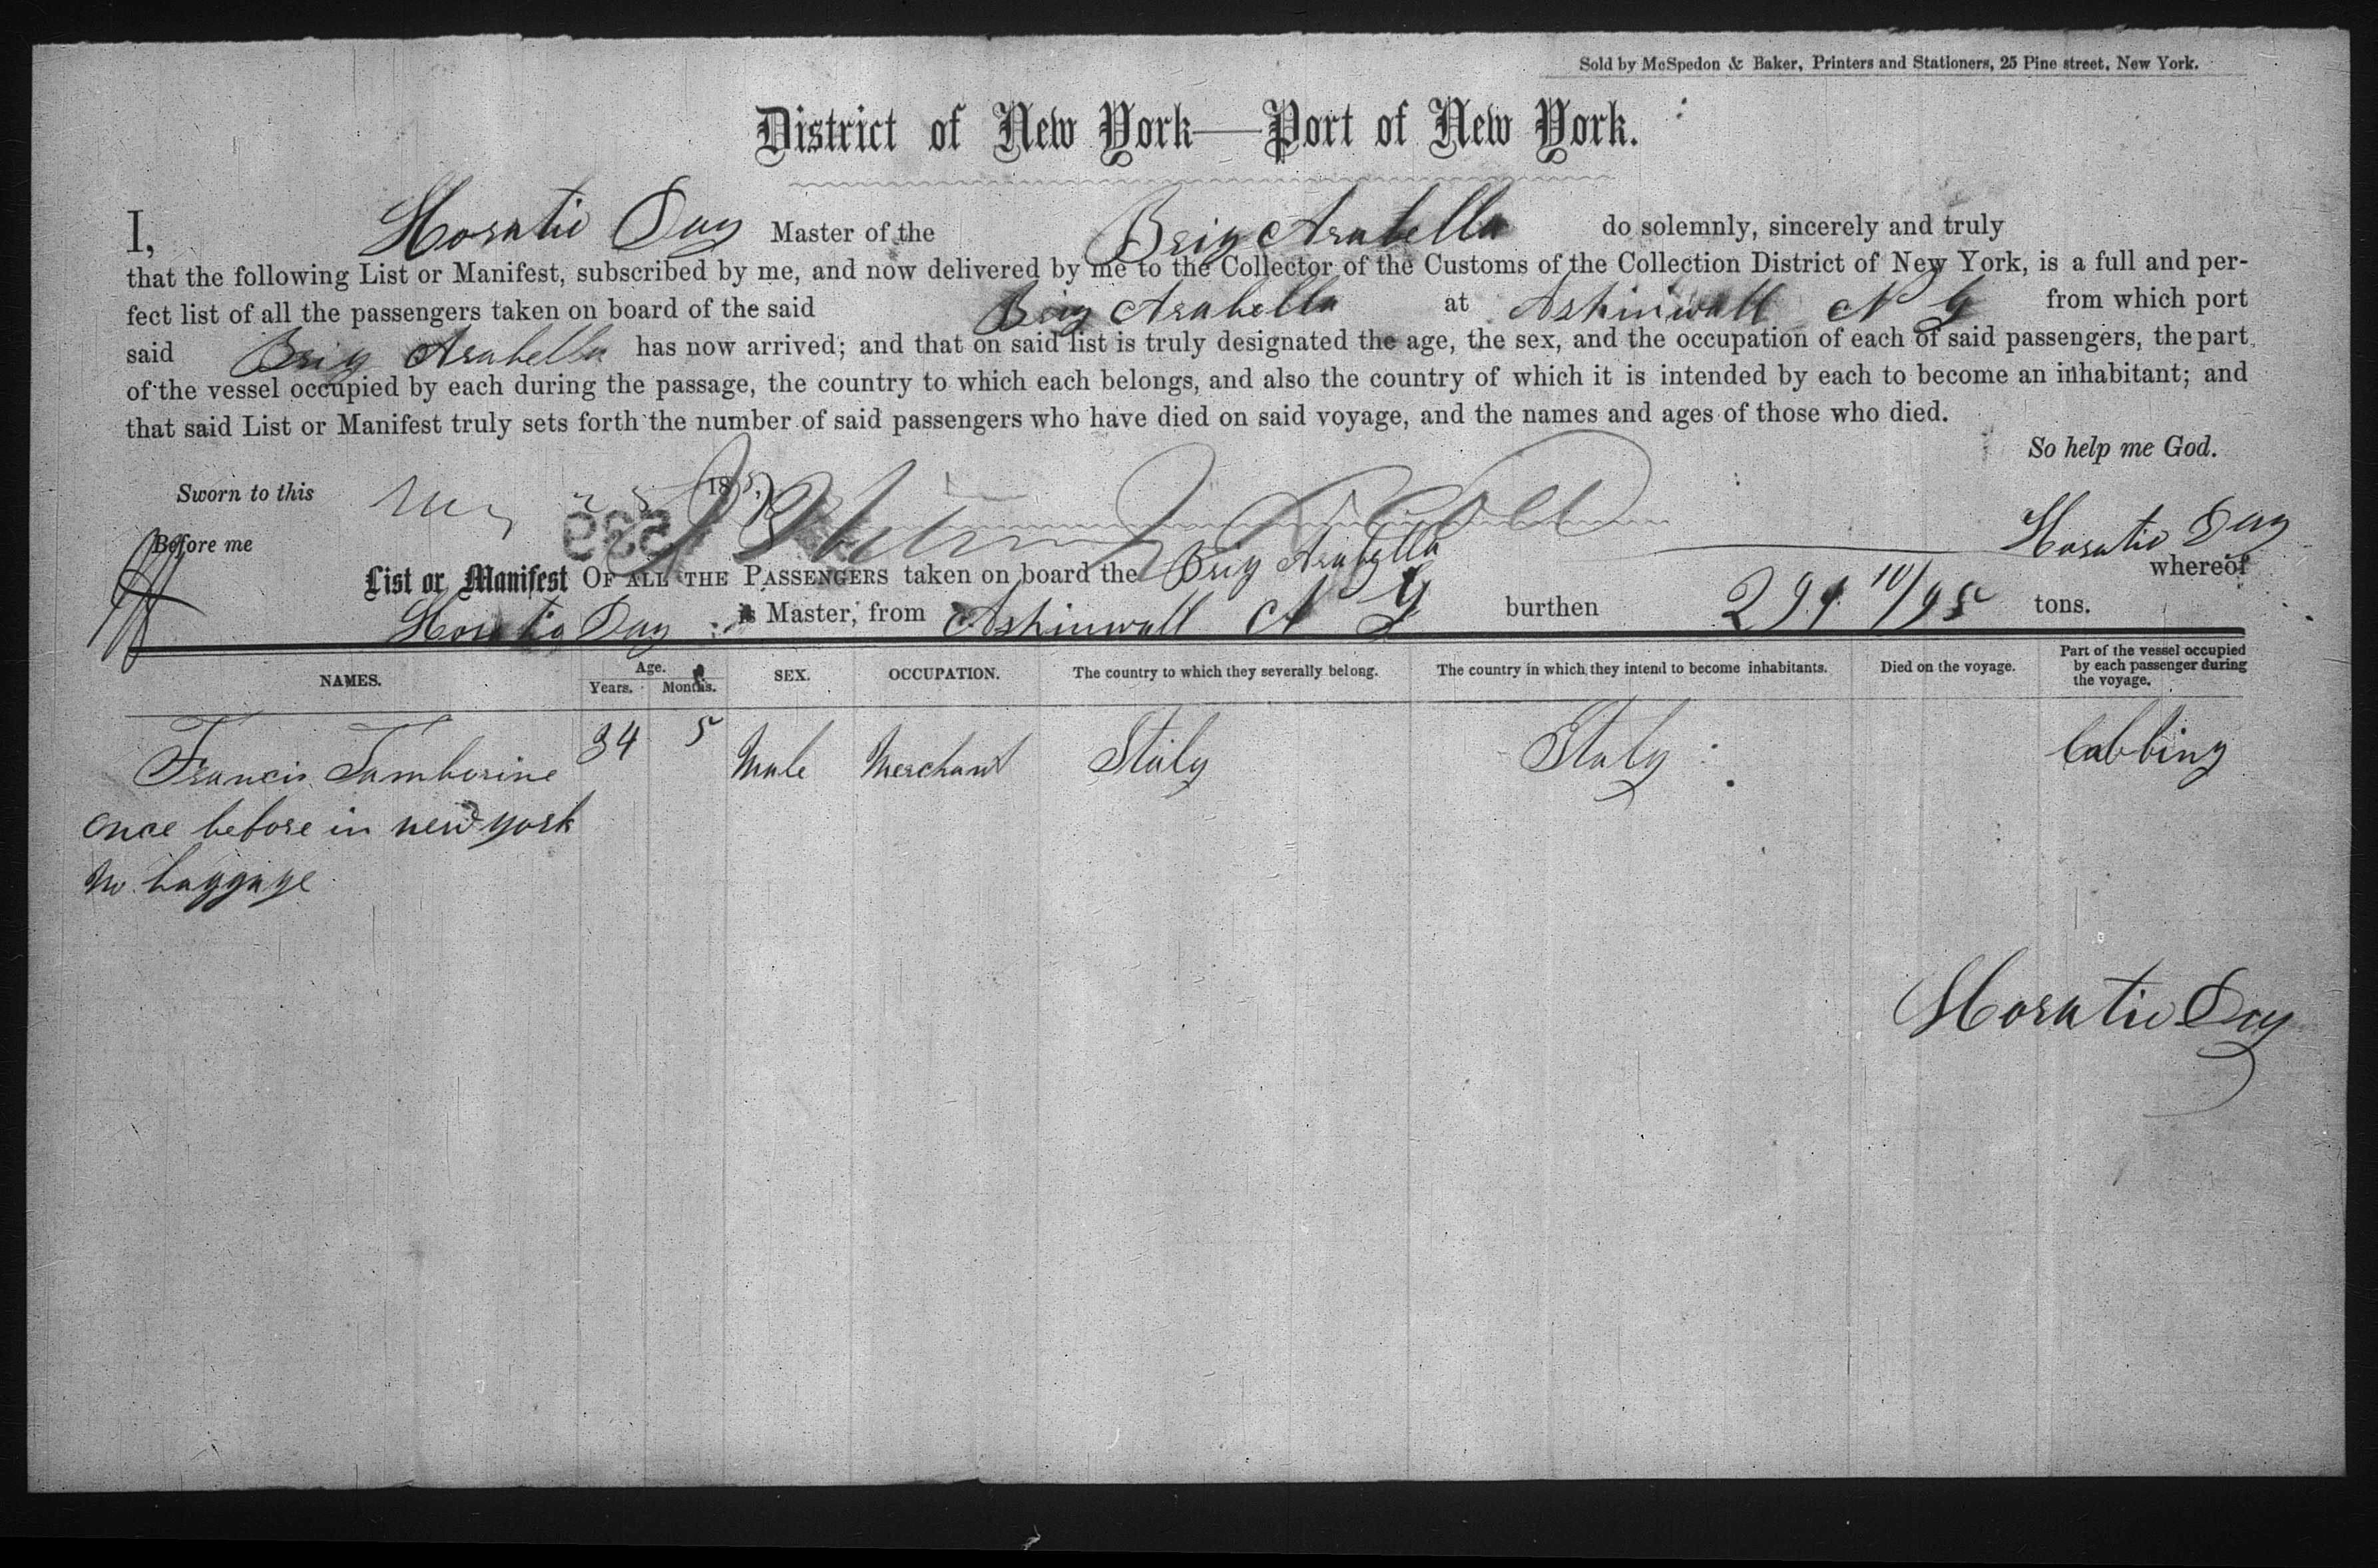 Sold by McSpedon & Baker, Printers and Stationers, 25 Pine street, New York.
District of New York—Port of New York.
I, Horatio Day Master of the Brig Arabella do solemnly, sincerely and truly
that the following List or Manifest, subscribed by me, and now delivered by me to the Collector of the Customs of the Collection District of New York, is a full and per-
fect list of all the passengers taken on board of the said Brig Arabella at Ashinwall N G from which port
said Brig Arabella has now arrived; and that on said list is truly designated the age, the sex, and the occupation of each of said passengers, the part
of the vessel occupied by each during the passage, the country to which each belongs, and also the country of which it is intended by each to become an inhabitant; and
that said List or Manifest truly sets forth the number of said passengers who have died on said voyage, and the names and ages of those who died.
So help me God.
Sworn to this 25 185
Before me
Horatio Day
List or Manifest OF ALL THE PASSENGERS taken on board the Brig Arabella whereof
Horatio Day is Master, from Ashinwall N G burthen 291 10/95 tons.
NAMES. Age. Years. Months. SEX. OCCUPATION. The country to which they severally belong. The country in which they intend to become inhabitants. Died on the voyage. Part of the vessel occupied by each passenger during the voyage.
Francis Tamborine 34 5 Male Merchant Italy Italy Cabbing
once before in new york
no baggage
Horatio Day